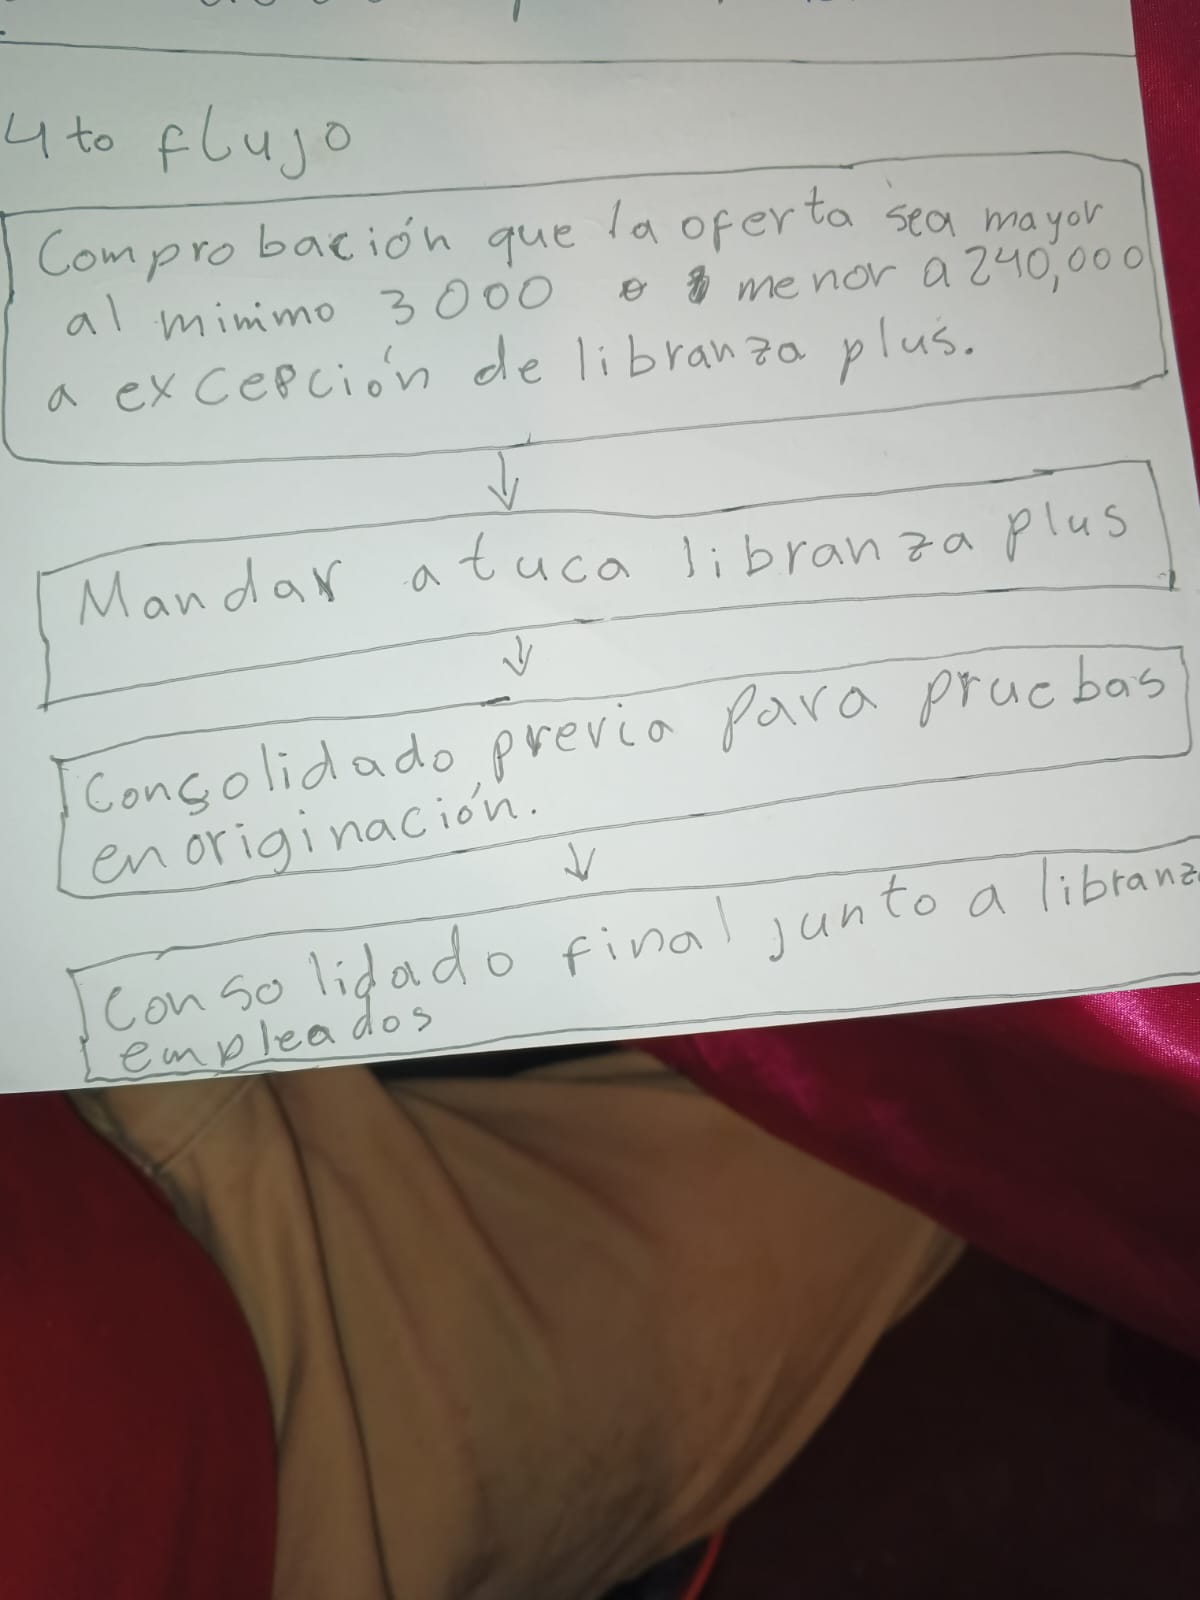 4to flujo
Comprobación que la oferta sea mayor
al minimo 3000 o menor a 240,000
a excepción de libranza plus.
Mandar a tuca libranza plus
Consolidado previa para pruebas
en originación.
Consolidado final junto a libranz
empleados